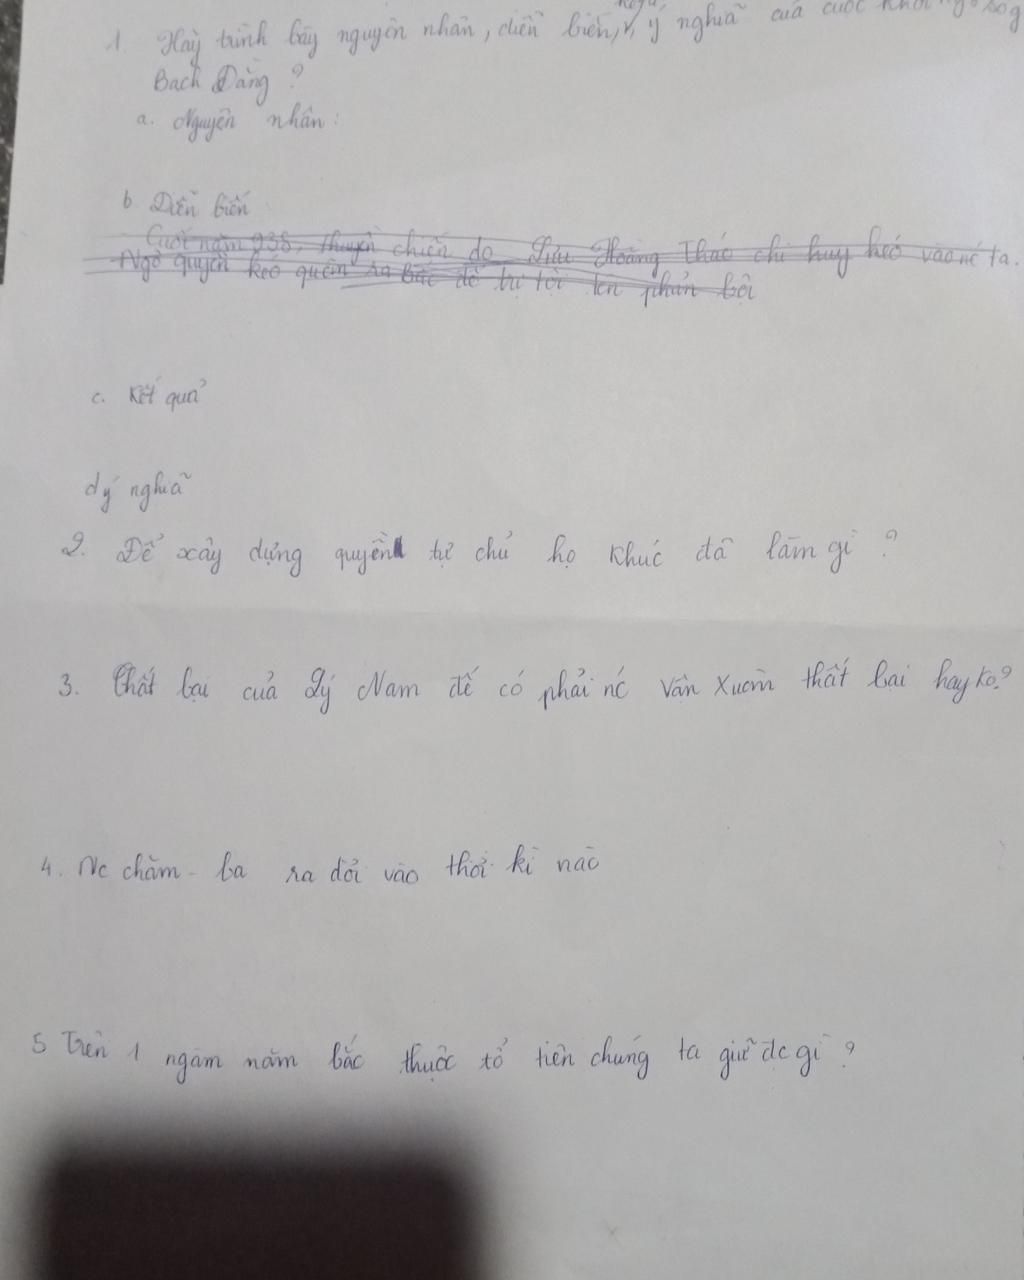 1. Hãy trình bày nguyên nhân, diễn biến, ý nghĩa của cuộc
Bạch Đằng ?
a. Nguyên nhân :
b Diễn biến
Cuối năm 938, thuyền chiến do Lưu Hoằng Tháo chỉ huy kéo vào nc ta.
Ngô quyền kéo quân ra Bắc để trị tội tên phản bội
c. Kết quả
d ý nghĩa
2. Để xây dựng quyền tự chủ họ Khúc đã làm gì ?
3. Thất bại của Lý Nam đế có phải nc Vạn Xuân thất bại hay ko?
4. Nc chăm - Pa ra đời vào thời kì nào
5 Trên 1 ngàm năm bắc thuộc tổ tiên chúng ta giữ đc gì ?